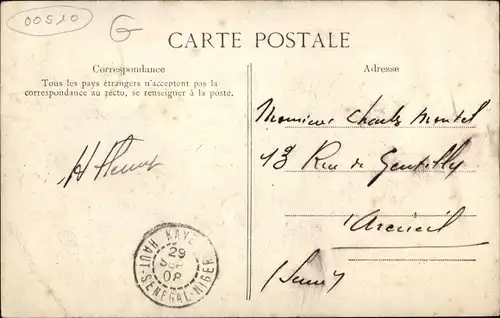 00510
G
CARTE POSTALE
Correspondance
Tous les pays étrangers n'acceptent pas la
correspondance au recto, se renseigner à la poste.
Adresse
Monsieur Charles Montel
19 Rue de Gentilly
Arcueil
(Seine)
KAYES
29
08
HAUT-SÉNÉGAL-NIGER